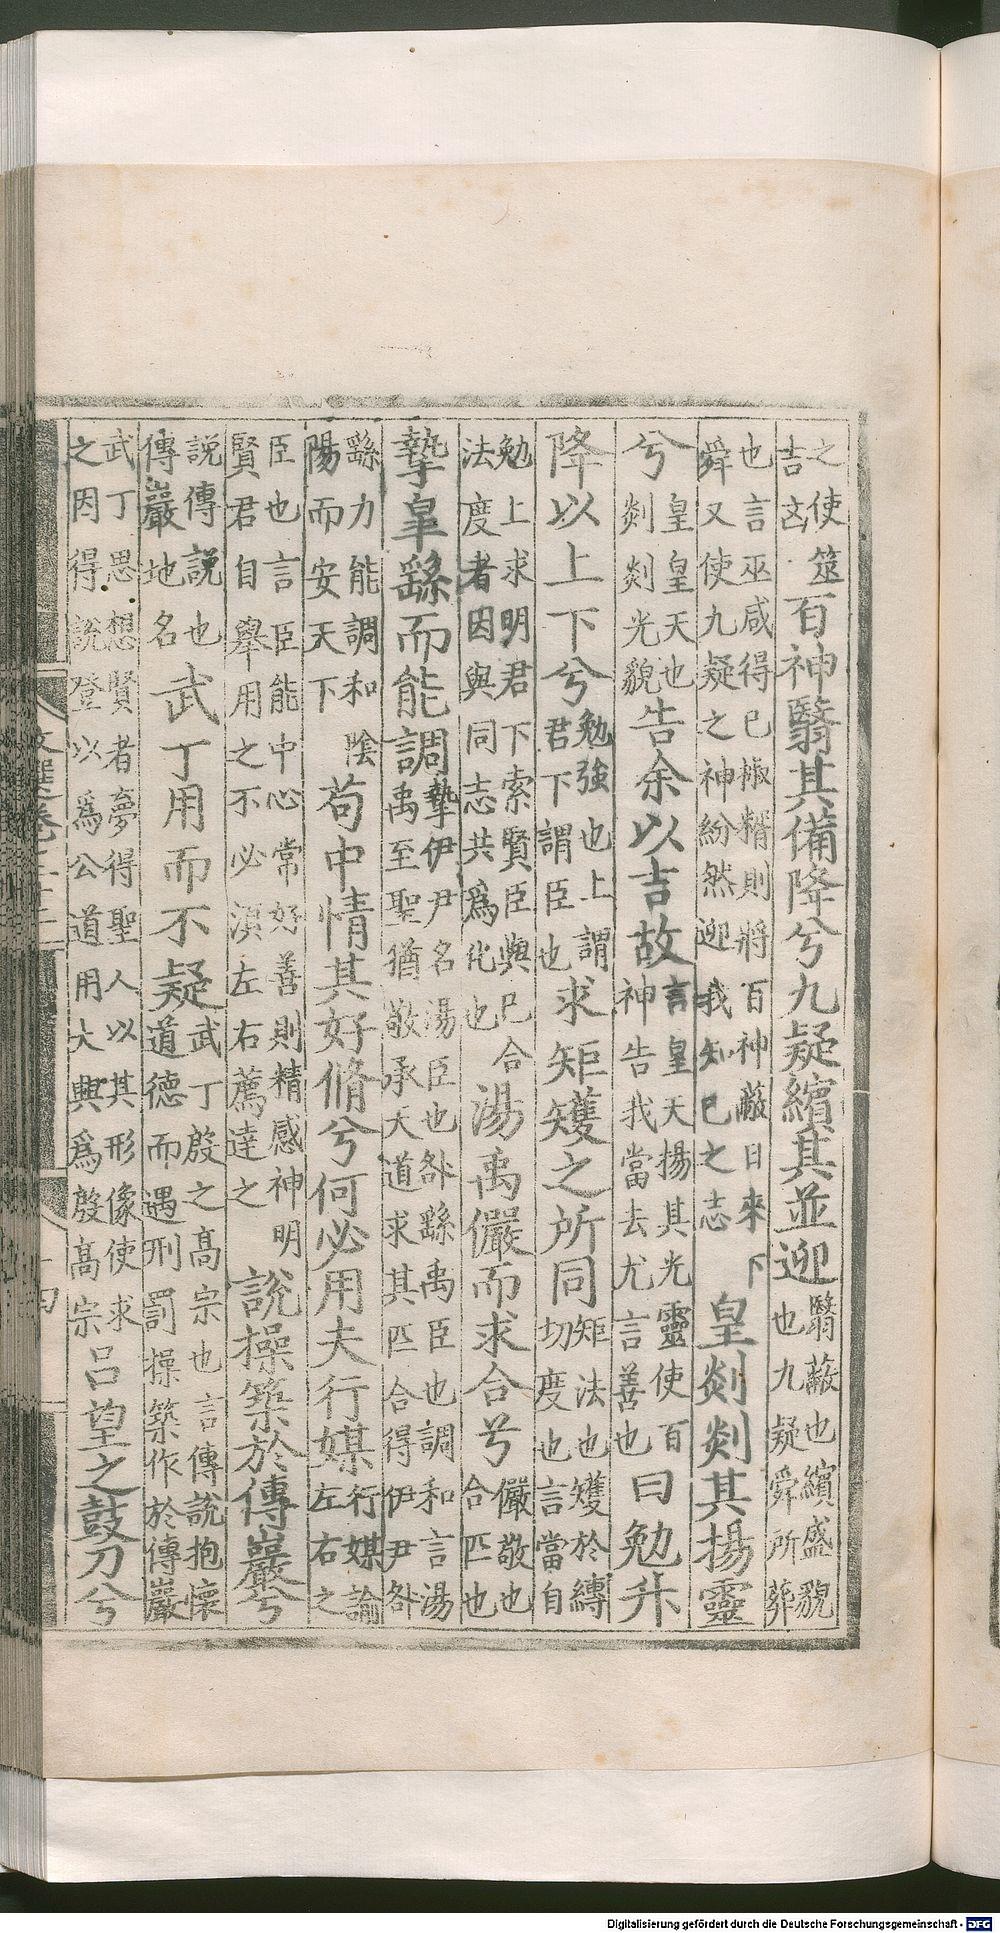 之使筮吉㐫百神翳其備降兮九疑繽其並迎翳蔽也繽盛貌也九疑舜所葬
也言巫咸得巳椒糈則將百神蔽日來下舜又使九疑之神紛然迎我知巳之志皇剡剡其揚靈
兮皇皇天也剡剡光貌告余以吉故言皇天揚其光靈使百神告我當去尤言善也曰勉升
降以上下兮勉強也上謂君下謂臣也求矩矱之所同矩法也矱於縛切度也言當自
勉上求明君下索賢臣與巳合法度者因與同志共爲化也湯禹儼而求合兮儼敬也合匹也
摯臯繇而能調摯伊尹名湯臣也咎繇禹臣也調和言湯禹至聖猶敬承天道求其匹合得伊尹咎
繇力能調和隂陽而安天下苟中情其好脩兮何必用夫行媒行媒諭左右之
臣也言臣能中心常好善則精感神明賢君自舉用之不必湏左右薦達之說操築於傅巖兮
說傅說也傅巖地名武丁用而不疑武丁殷之髙宗也言傅說抱懷道德而遇刑罰操築作於傅巖
武丁思想賢者夢得聖人以其形像使求之因得說登以爲公道用大興爲殷髙宗吕望之鼓刀兮
文選卷三十二
十四
Digitalisierung gefördert durch die Deutsche Forschungsgemeinschaft - DFG